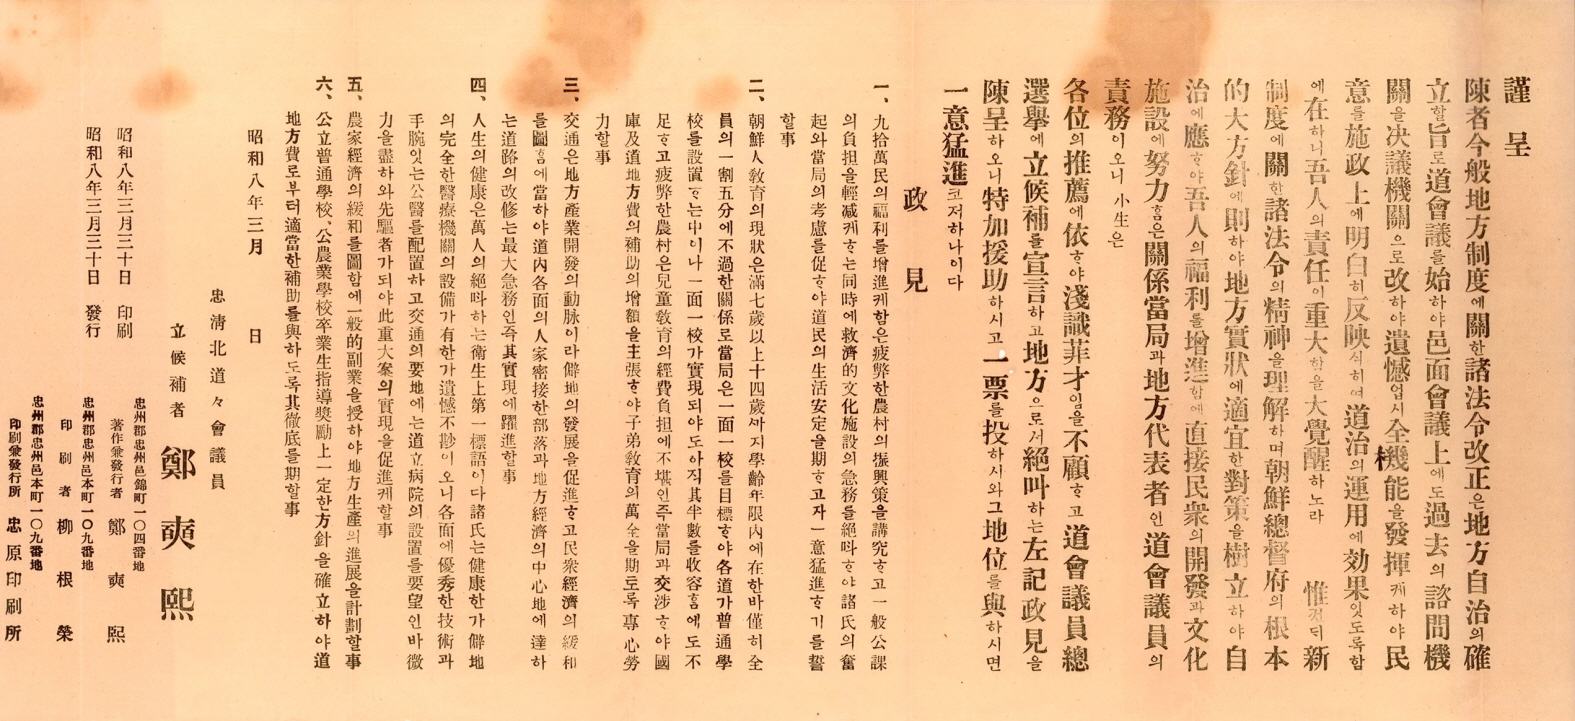 謹呈
陳者今般地方制度에關한諸法令改正은地方自治의確
立할旨로道會議를始하야邑面會議上에도過去의諮問機
關을決議機關으로改하야遺憾업시全機能을發揮케하야民
意를施政上에明白히反映식히여道治의運用에効果잇도록함
에在하니吾人의責任이重大함을大覺醒하노라 惟컨듸新
制度에關한諸法令의精神을理解하며朝鮮總督府의根本
的大方針에則하야地方實狀에適宜한對策을樹立하야自
治에應ᄒᆞ야吾人의福利를增進함에直接民衆의開發과文化
施設에努力홈은關係當局과地方代表者인道會議員의
責務이오니小生은
各位의推薦에依ᄒᆞ야淺識菲才임을不顧ᄒᆞ고道會議員總
選擧에立候補를宣言하고地方으로서絕叫하는左記政見을
陳呈하오니特加援助하시고一票를投하시와그地位를與하시면
一意猛進코저하나이다
政見
一、九拾萬民의福利를增進케함은疲弊한農村의振興策을講究ᄒᆞ고一般公課
의負担을輕减케ᄒᆞ는同時에救濟的文化施設의急務를絕叫ᄒᆞ야諸氏의奮
起와當局의考慮를促ᄒᆞ야道民의生活安定을期ᄒᆞ고자一意猛進ᄒᆞ기를誓
할事
二、朝鮮人敎育의現狀은滿七歲以上十四歲ᄭᅡ지學齡年限內에在한바僅히全
員의一割五分에不過한關係로當局은一面一校를目標ᄒᆞ야各道가普通學
校를設置ᄒᆞ는中이나一面一校가實現되야도아직其半數를收容홈에도不
足ᄒᆞ고疲弊한農村은兒童敎育의經費負担에不堪인즉當局과交涉ᄒᆞ야國
庫及道地方費의補助의增額을主張ᄒᆞ야子弟敎育의萬全을期토록專心勞
力할事
三、交通은地方產業開發의動脉이라僻地의發展을促進ᄒᆞ고民衆經濟의緩和
를圖홈에當하야道內各面의人家密接한部落과地方經濟의中心地에達하
는道路의改修는最大急務인즉其實現에躍進할事
四、人生의健康은萬人의絕叫하는衛生上第一標語이다諸氏는健康한가僻地
의完全한醫療機關의設備가有한가遺憾不尠이오니各面에優秀한技術과
手腕잇는公醫를配置하고交通의要地에는道立病院의設置를要望인바微
力을盡하와先驅者가되야此重大案의實現을促進케할事
五、農家經濟의緩和를圖함에一般的副業을授하야地方生產의進展을計劃할事
六、公立普通學校、公農業學校卒業生指導奬勵上一定한方針을確立하야道
地方費로부터適當한補助를與하도록其徹底를期할事
昭和八年三月 日
忠淸北道々會議員
立候補者 鄭奭熙
昭和八年三月三十日 印刷
昭和八年三月三十日 發行
忠州郡忠州邑錦町一〇四番地
著作兼發行者 鄭奭熙
忠州郡忠州邑本町一〇九番地
印刷者 柳根榮
忠州郡忠州邑本町一〇九番地
印刷兼發行所 忠原印刷所